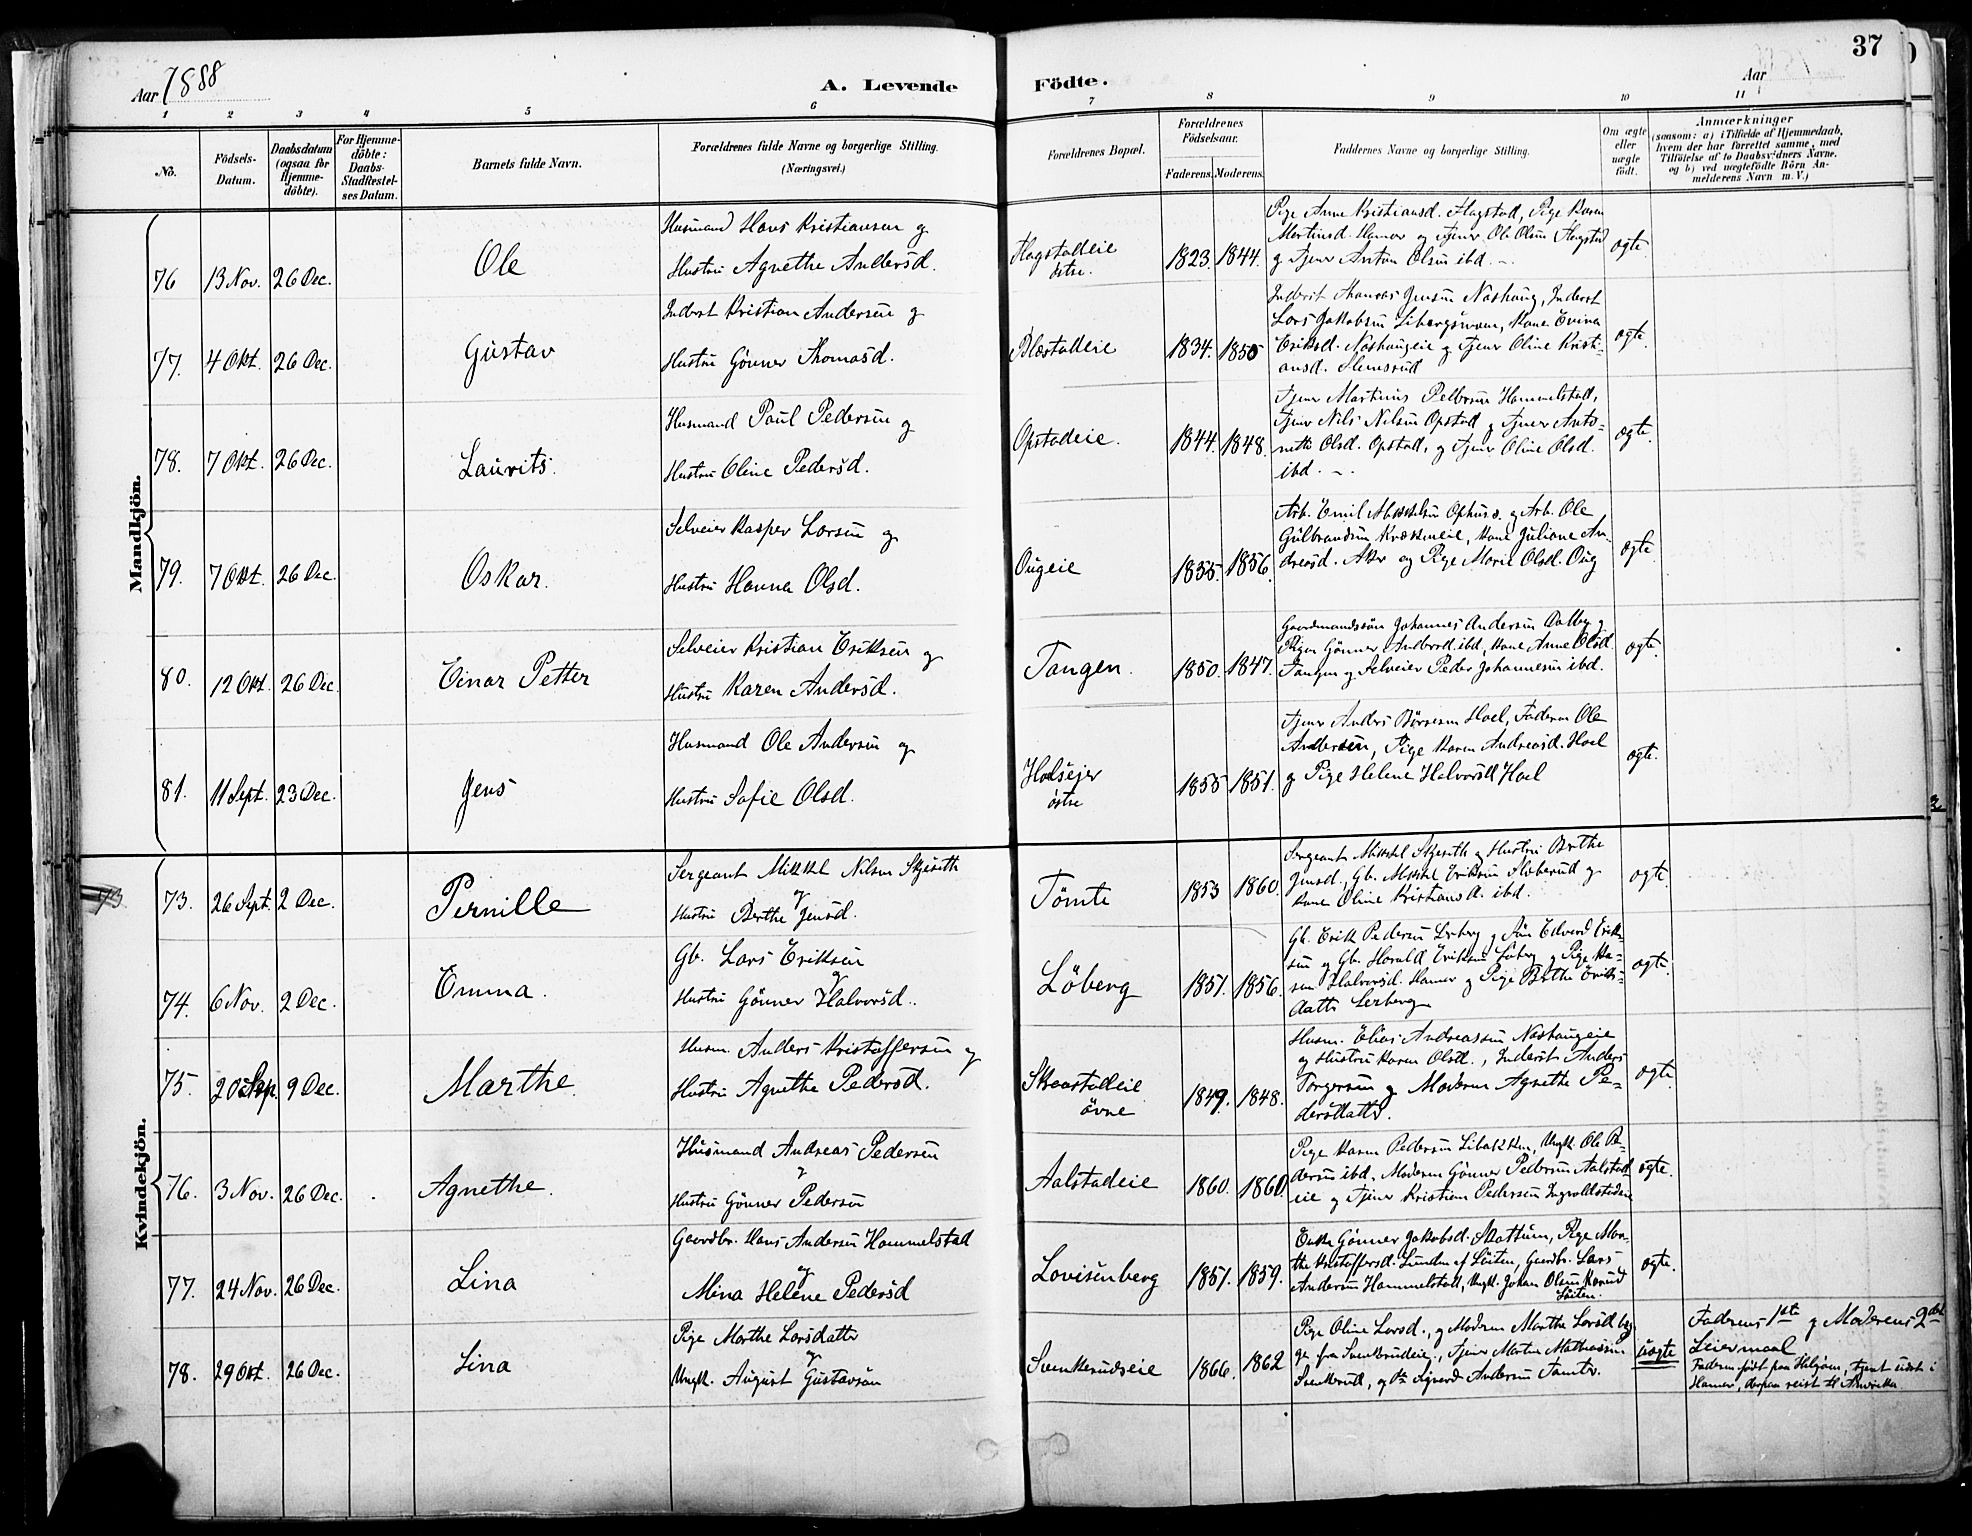 37
Aar 1888
A. Levende Födte.
Aar
1 2 3 4 5 6 7 8 9 10 11
No.
Födsels-Datum.
Daabsdatum (ogsaa for Hjemmedöbte).
For Hjemmedöbte: Daabs-Stadfæstelses Datum.
Barnets fulde Navn.
Forældrenes fulde Navne og borgerlige Stilling. (Næringsvei.)
Forældrenes Bopæl.
Forældrenes Födselsaar.
Faderens. Moderens.
Faddernes Navne og borgerlige Stilling.
Om ægte eller uægte födt.
Anmærkninger
(saasom: a) i Tilfælde af Hjemmedaab, hvem der har forrettet samme, med Tilföielse af to Daabsvidners Navne, og b) ved uægtefödte Börn Anmelderens Navn m. V.)
Mandkjön.
76 13 Nov. 26 Dec. Ole
Husmand Hans Kristiansen og
Hustru Agnethe Andersd.
Hagstadeie østre. 1823. 1844.
Pige Anne Kristiansd. Hagstad, Pige Karen
Martinsd. Hamar og Tjener Ole Olsen Hagstad
og Tjener Anton Olsen ibd. ægte.
77. 4 Okt. 26 Dec. Gustav
Inderst Kristian Andersen og
Hustru Gønner Thomasd.
Blæstadeie 1834. 1850
Inderst Thomas Jensen Nashaug, Inderst
Lars Jakobsen Kone
Eriksd. Nashaugeie og Tjener Oline Kristi-
ansd. ægte.
78. 7 Okt. 26 Dec. Laurits.
Husmand Paul Pedersen og
Hustru Oline Pedersd.
Opstadeie. 1844. 1848.
Tjener Martinus Pedersen Hommelstad,
Tjener Nils Nilsen Opstad og Tjener Anto-
nette Olsd. Opstad, og Tjener Oline Olsd.
ibd. ægte.
79. 7 Okt. 26 Dec. Oskar.
Selveier Kasper Larsen og
Hustru Hanna Olsd.
Ougeie 1855. 1856.
Arb. Emil Mikkelsen Ophus og Arb. Ole
Gulbrandsen Kone Juliane An-
dreasd. Aker og Pige Marie Olsd. Oug ægte
80. 12 Okt. 26 Dec. Einar Petter
Selveier Kristian Eriksen og
Hustru Karen Andersd.
Tangen. 1850. 1847.
Gaardmandssøn Johannes Andersen Dalby og
Pigen Gønner Andersd. ibd, Kone Anne Olsd.
Tangen og Selveier Peder Johannesen ibd. ægte.
81. 11 Sept. 23 Dec. Jens
Husmand Ole Andersen og
Hustru Sofie Olsd.
Holsejer østre 1855 1851.
Tjener Anders Børresen Hoel, Faderen Ole
Andersen, Pige Karen Andreasd. Hoel
og Pige Helene Halvorsd Hoel ægte.
Kvindekjön.
73
73. 26 Sept. 2 Dec. Pernille
Sergeant Mikkel Nilsen Skjeseth
og
Hustru Berthe Jensd.
Tømte 1853 1860.
Sergeant Mikkel Skjeseth og Hustru Berthe
Jensd., Gb. Mikkel Eriksen Floberud og
Kone Oline Kristiansd. ibd. ægte.
74. 6 Nov. 2 Dec. Emma.
Gb. Lars Eriksen
og
Hustru Gønner Halvorsd.
Løberg 1851. 1856.
Gb. Erik Pedersen Løberg og Søn Edvard Erik-
sen og Gb. Harald Eriksen Løberg og Pige Ka-
ren Halvorsd. Hamar og Pige Berthe Eriks-
datter Løberg ægte.
75. 20 Sep. 9 Dec. Marthe
Husm. Anders Kristoffersen og
Hustru Agnethe Pedersd.
Skaarstadeie øvre 1849. 1848.
Husm. Elias Andreassen Nashaugeie
og Hustru Karen Olsd., Inderst Anders
Torgersen og Moderen Agnethe Pe-
dersdatter. ægte.
76. 3 Nov. 26 Dec. Agnethe.
Husmand Andreas Pedersen
og
Hustru Gønner Pedersen
Aalstadeie 1860. 1860.
Pige Karen Pedersen Libakken, Ungk. Ole Pe-
dersen ibd. Moderen Gønner Pedersen Aalstad-
eie og Tjener Kristian Pedersen Ingvoldstadeie ægte.
77. 24 Nov. 26 Dec. Lina
Gaardbr. Hans Andersen Hommelstad
og
Mina Helene Pedersd
Lovisenberg 1851. 1859.
Enke Gønner Jakobsd. Skattum, Pige Mar-
the Kristoffersd. Lunden af Løiten, Gaardbr. Lars
Andersen Hommelstad, Ungk. Johan Olsen
Løiten. ægte.
78. 29 Okt. 26 Dec. Lina
Pige Marthe Larsdatter
og
Ungk. August Gustavsøn
Svenkerudseie 1866. 1862
Pige Oline Larsd., og Moderen Marthe Larsd beg-
ge fra Svenkerudeie, Tjener Martin Mathiassen
Svenkerud, og do Sigvard Andersen Tomter. uægte
Faderens 1ste og Moderens 2det
Leiermaal
Faderen født paa Helgøen, tjent sidst i
Hamar, derpaa reist til Amerika